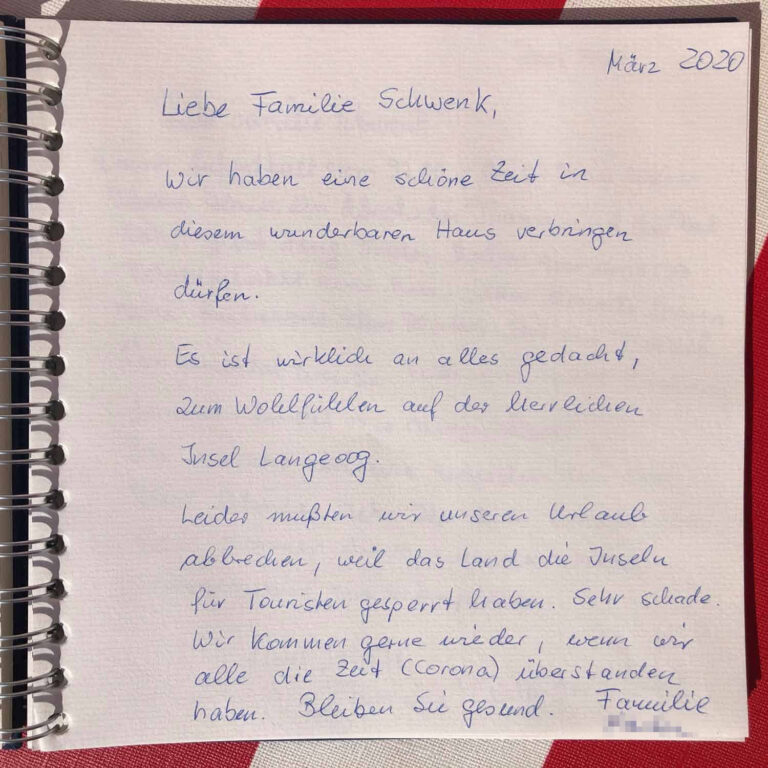 März 2020
Liebe Familie Schwenk,
Wir haben eine schöne Zeit in
diesem wunderbaren Haus verbringen
dürfen.
Es ist wirklich an alles gedacht,
zum Wohlfühlen auf der herrlichen
Insel Langeoog.
Leider mußten wir unseren Urlaub
abbrechen, weil das Land die Inseln
für Touristen gesperrt haben. Sehr schade.
Wir kommen gerne wieder, wenn wir
alle die Zeit (Corona) überstanden
haben. Bleiben Sie gesund. Familie